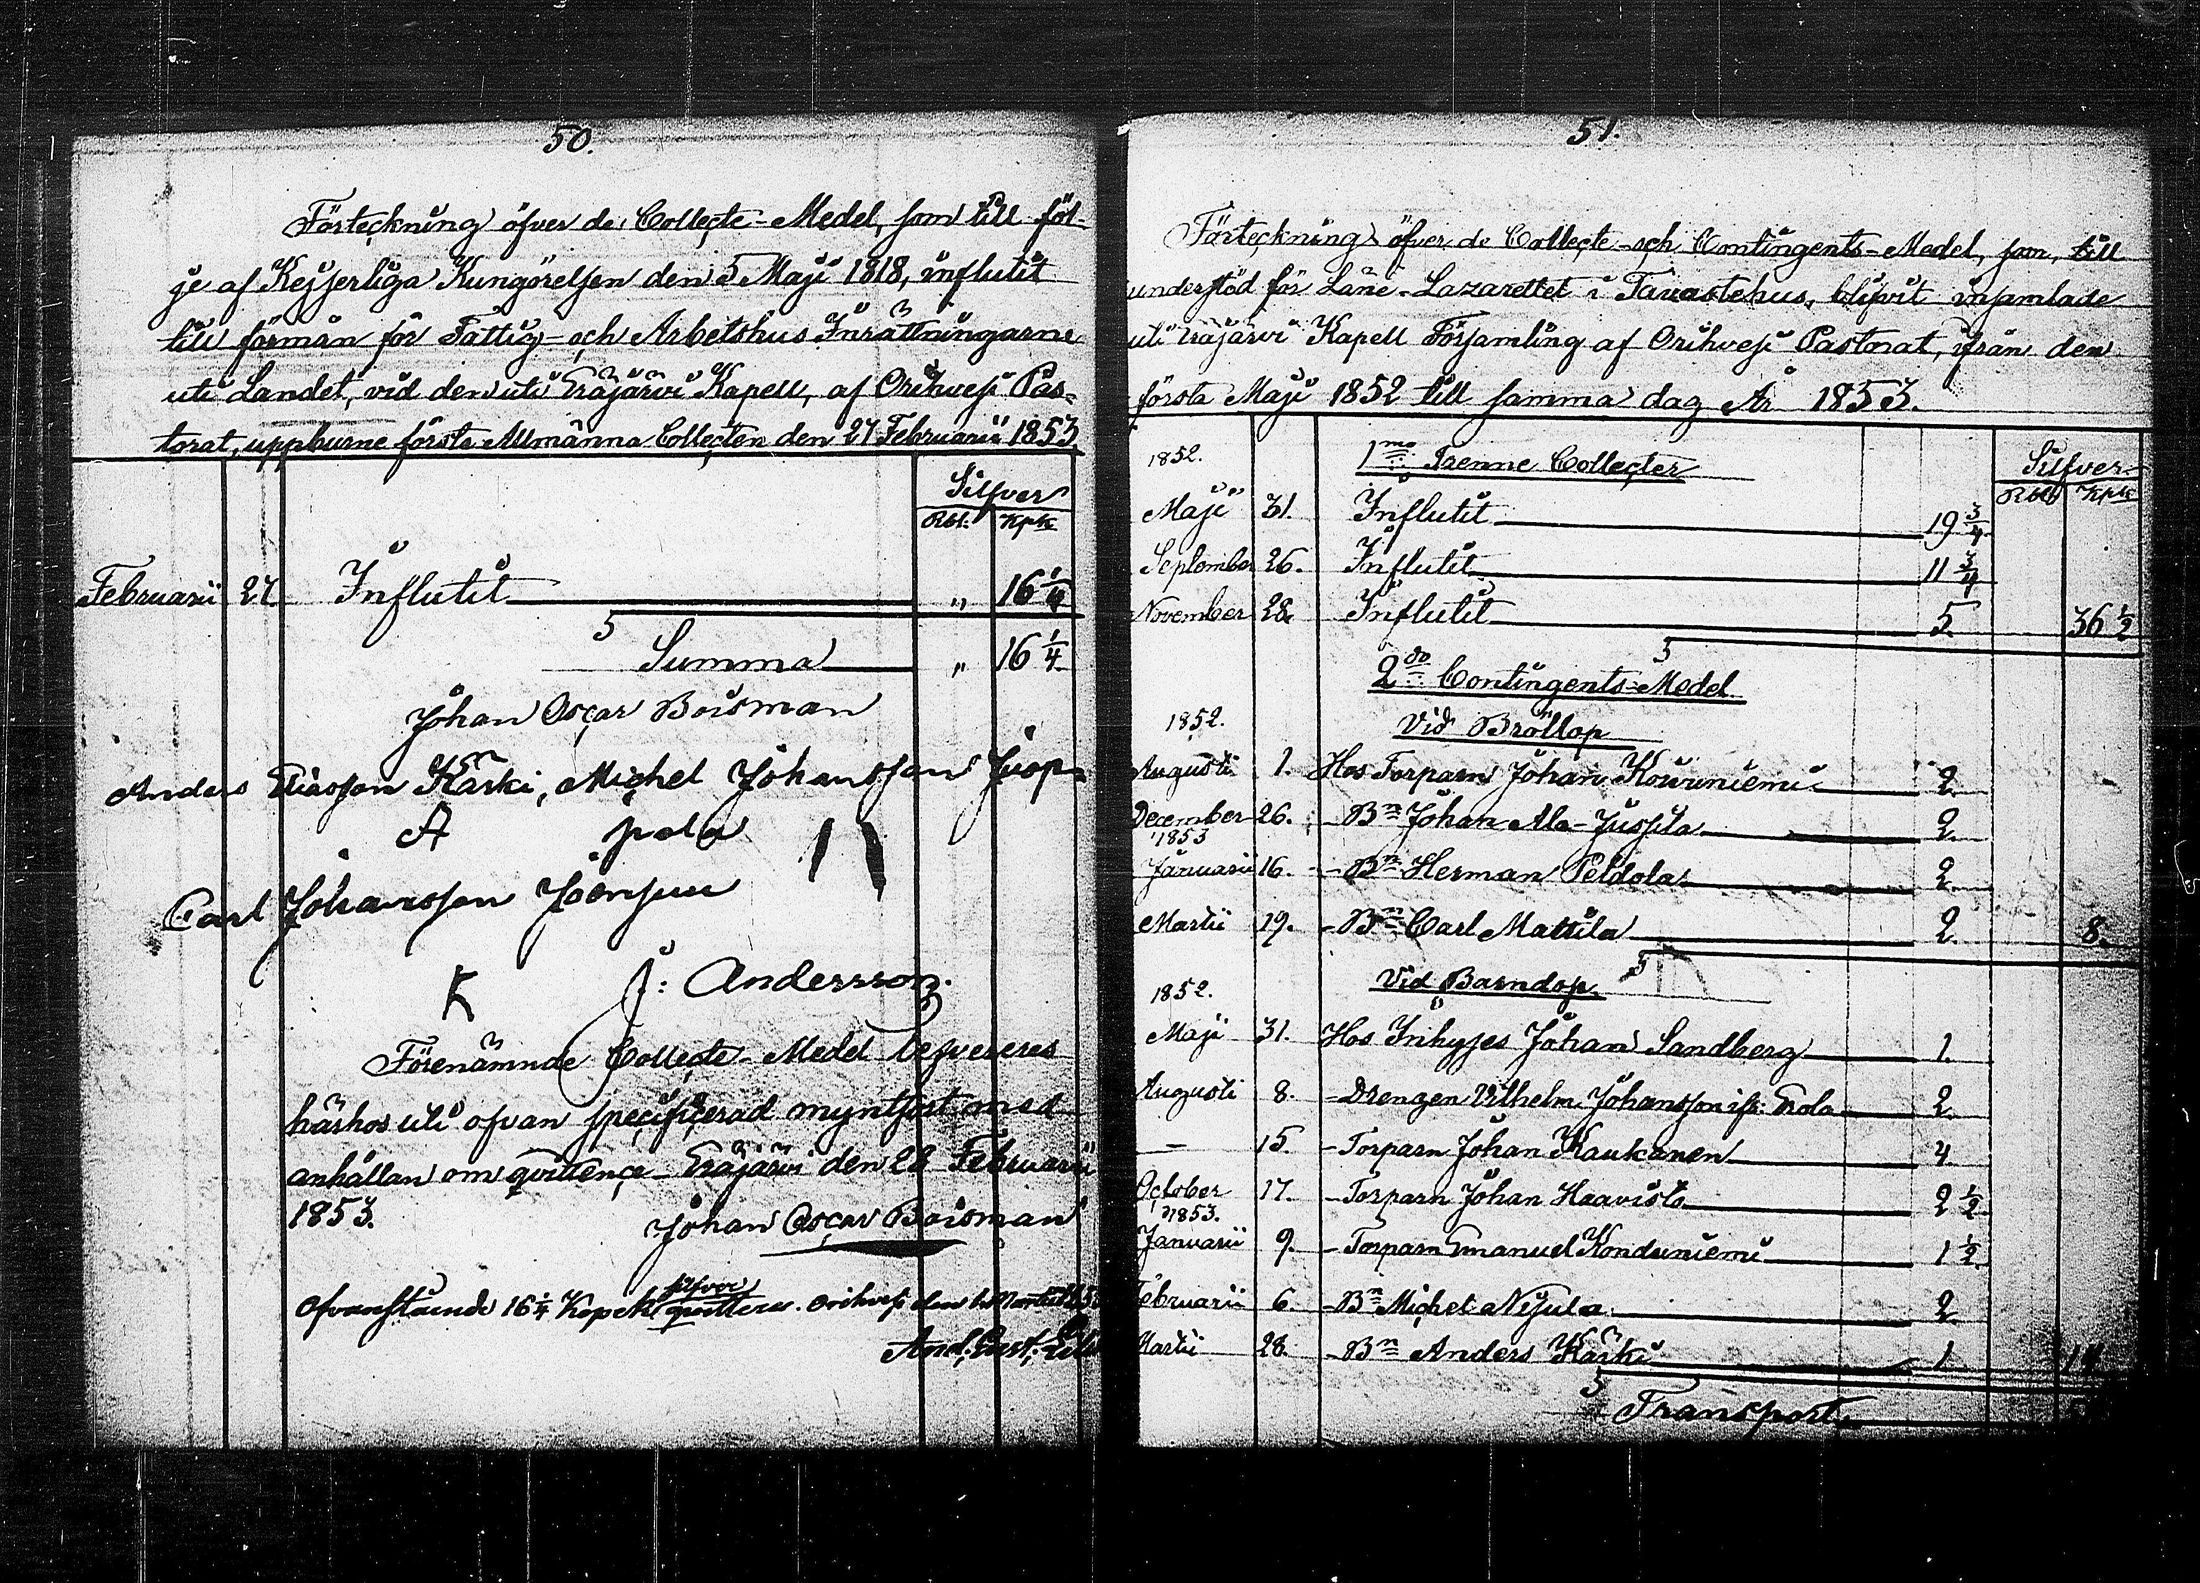 50.
Förteckning öfver de Collecte-Medel, som till föl-
je af Kejserliga Kungörelsen den 5 Maji 1818, influtit
till förmån för Fattig- och Arbetshus Inrättningarne
uti Landet, vid den uti Eräjärvi Kapell, af Orihvesi Pas-
torat, uppburne första Allmänna Collecten den 27 Februarii 1853
Silfver
Rbl. Kpk
Februarii 27. Influtit " 16 1/4
Summa " 16 1/4
Johan Oscar Boisman
Anders Eliasson Kärki, Michel Johansson Juop-
A pola
Carl Johansson Joensuu
K J: Andersson.
Förenämnde Collecte-Medel lefvereres
härhos uti ofvan specificerad myntsort med
anhållan om qvittence. Eräjärvi den 28 Februarii
1853. Johan Oscar Boisman
Ofvanstående 16 1/4 Kopek silfver qvitteras. Orihvesi den 1 Martii
And: Gust:
51.
Förteckning öfver de Collecte- och Contingents-Medel, som, till
understöd för Läne-Lazarettet i Tavastehus, blifvit insamlade
uti Eräjärvi Kapell Församling af Orihvesi Pastorat, ifrån den
första Maji 1852 till samma dag År 1853.
1852. 1mo Trenne Collecter Silfver
Rbl. Kpk
Maji 31. Influtit 19 3/4
September 26. Influtit 11 3/4
November 28. Influtit 5. 36 1/2
2do Contingents-Medel
1852. Vid Bröllop
Augusti 1. Hos Torparn Johan Koivuniemi 2.
December 26. - Bn Johan Ala-Jussila 2.
1853
Januarii 16. - Bn Herman Peldola 2.
Martii 19. - Bn Carl Mattila 2. 8.
1852. Vid Barndop
Maji 31. Hos Inhyses Johan Sandberg 1.
Augusti 8. - Drengen Vilhelm Johansson ifr: Erola 2.
— 15. - Torparn Johan Kaukanen 4.
October 17. - Torparn Johan Haavisto 2 1/2
1853.
Januarii 9. - Torparn Emanuel Konduniemi 1 1/2
Februarii 6. - Bn Michel Nisula 2
Martii 28. - Bn Anders Kärki 1. 14
Transport